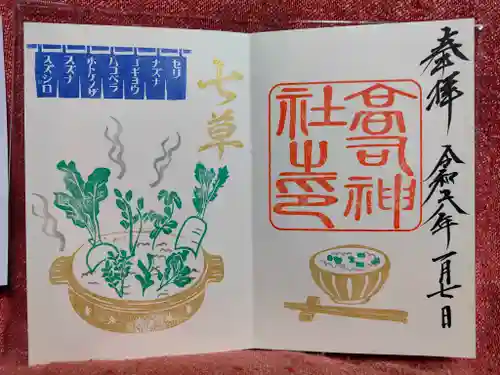 奉拝 令和六年 一月七日
高司神
社之印
七草
セリ
ナズナ
ゴギョウ
ハコベラ
ホトケノザ
スズナ
スズシロ